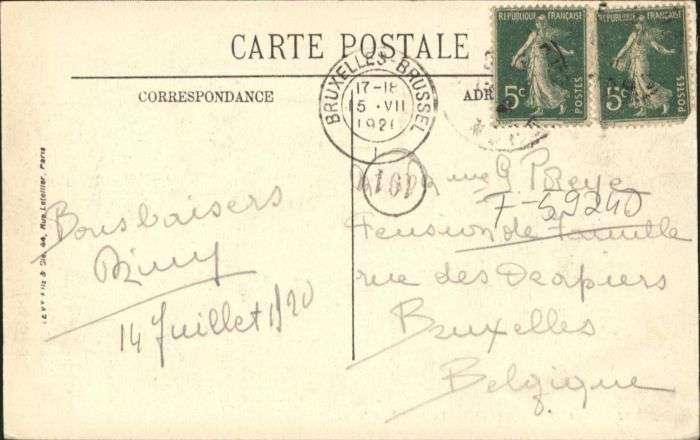 CARTE POSTALE
CORRESPONDANCE
ADR
REPUBLIQUE FRANÇAISE
5c
POSTES
REPUBLIQUE FRANÇAISE
5c
POSTES
BRUXELLES-BRUSSEL
17-18
5 · VII
192
Rue Letellier, Paris
Bons baisers
14 Juillet 1920
me G
F-59240
Pension de famille
rue des Drapiers
Bruxelles
Belgique